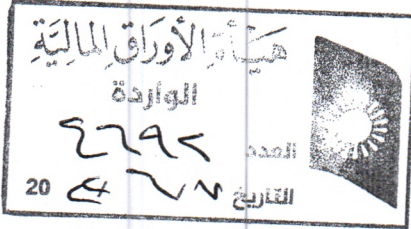 هَيْأَةِ الأَوْرَاقِ المَالِيَّةِ
الواردة
العدد ٤٦٩٢
التاريخ 20